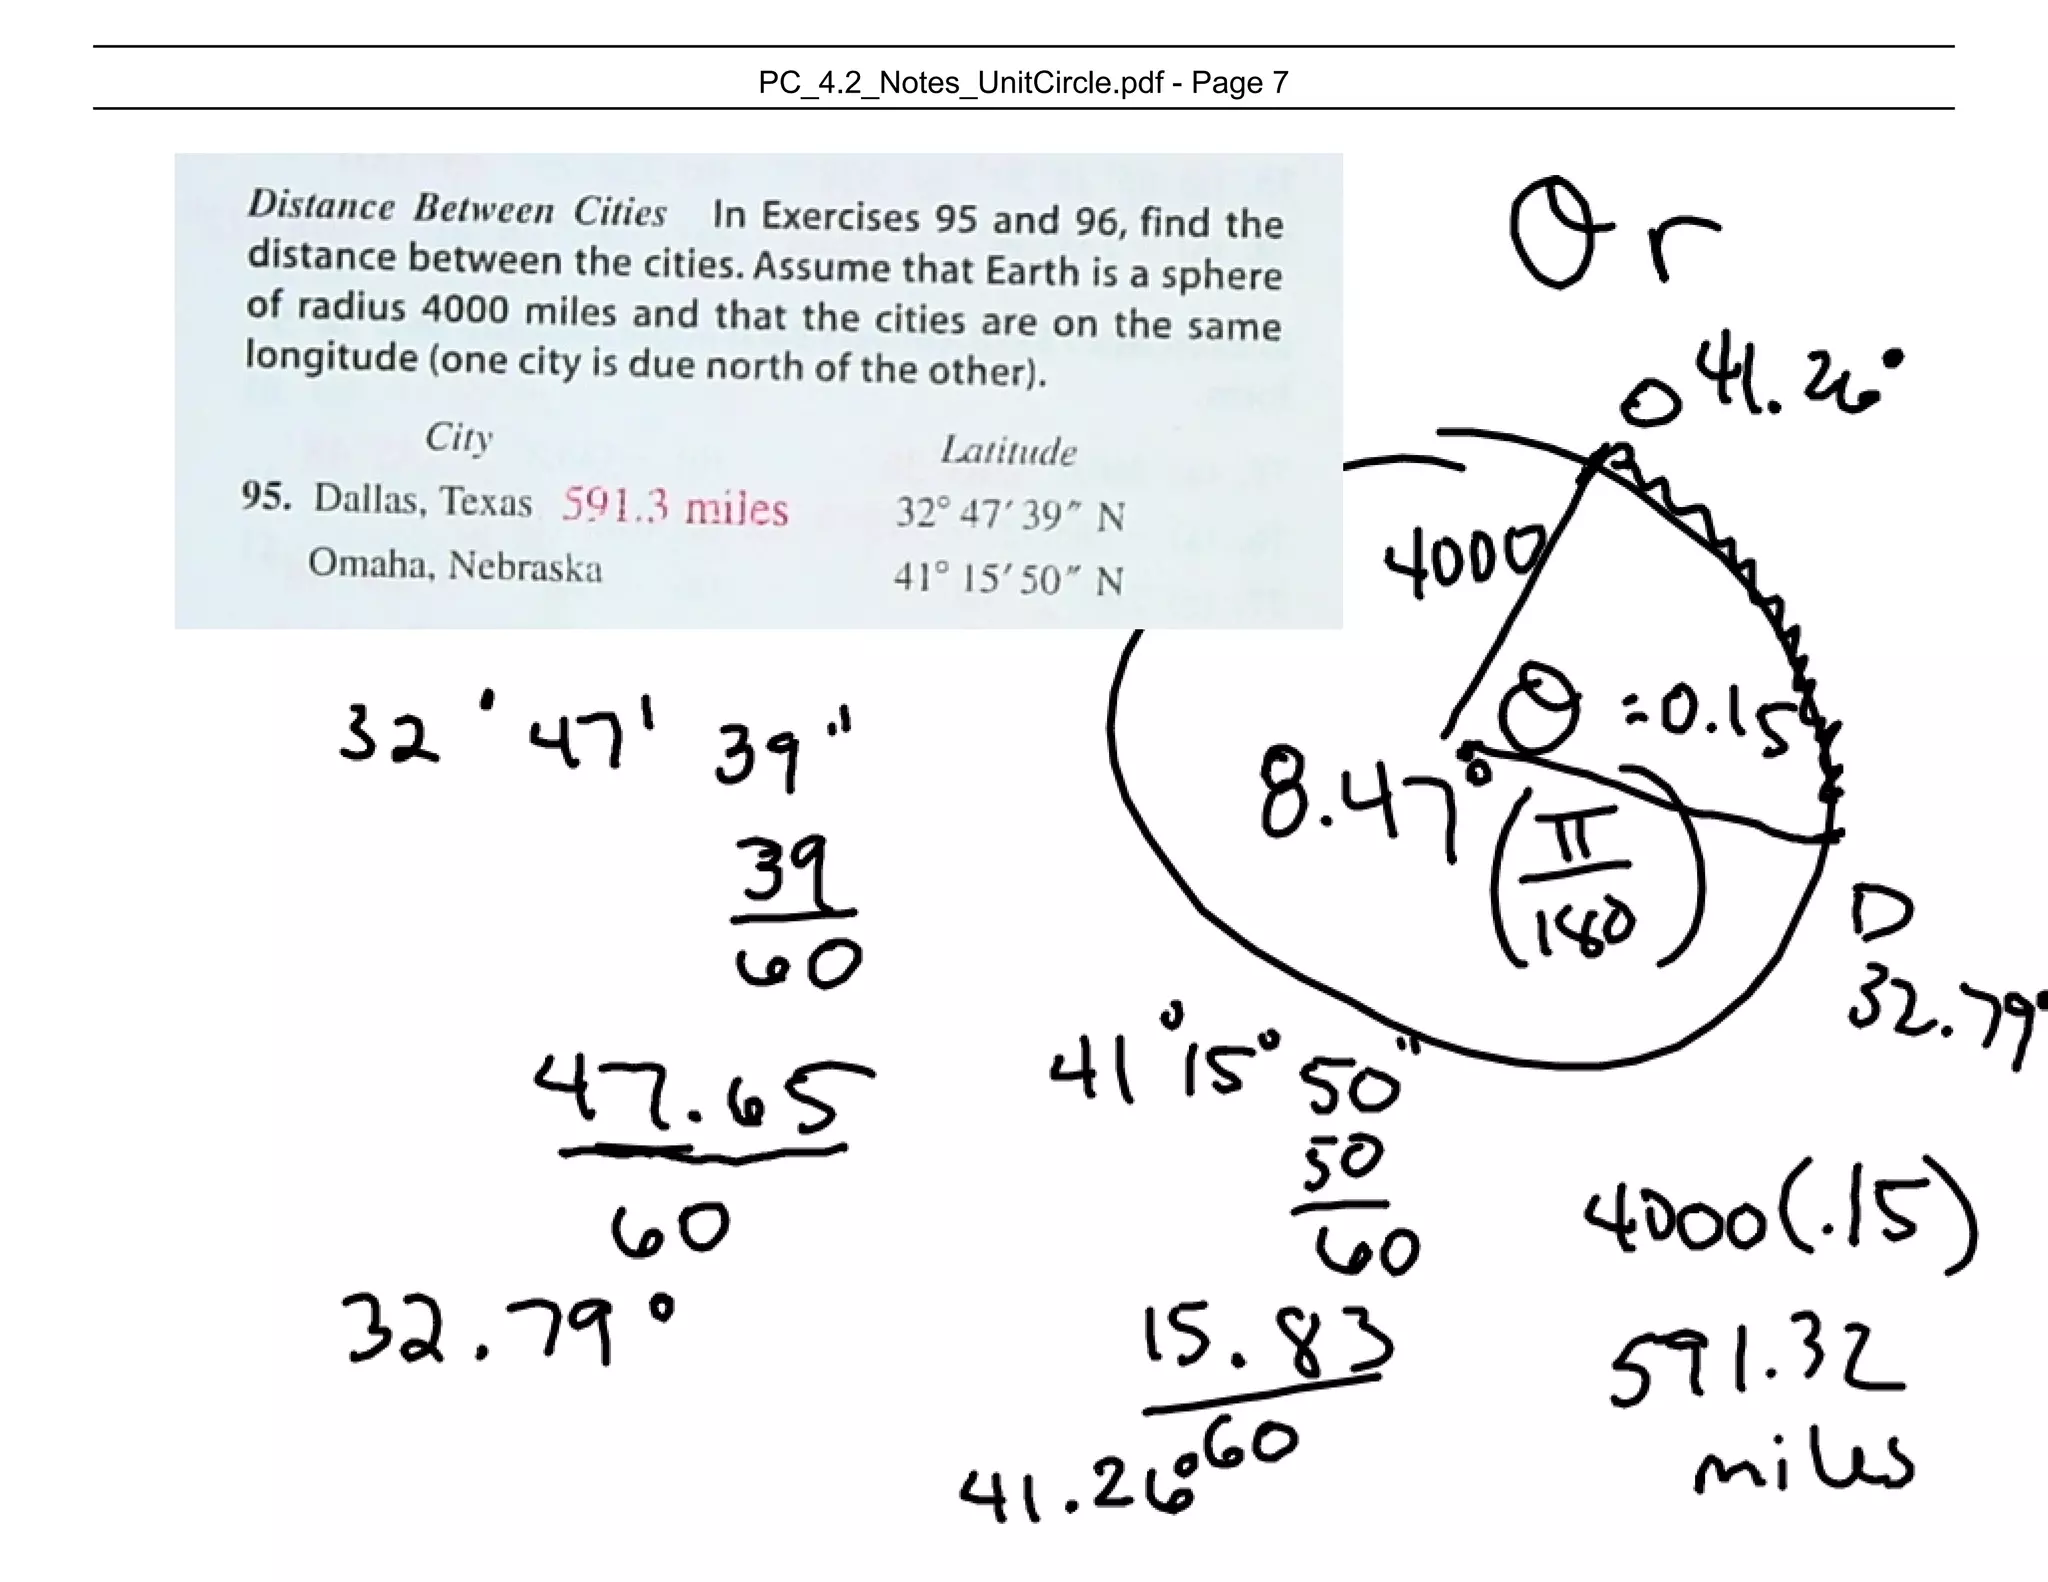 PC_4.2_Notes_UnitCircle.pdf - Page 7
Distance Between Cities In Exercises 95 and 96, find the
distance between the cities. Assume that Earth is a sphere
of radius 4000 miles and that the cities are on the same
longitude (one city is due north of the other).
City Latitude
95. Dallas, Texas 591.3 miles 32° 47′ 39″ N
Omaha, Nebraska 41° 15′ 50″ N
θ r
O 41.26°
4000
θ = 0.15
8.47° (π/180)
D
32.79°
32° 47' 39"
39
60
47.65
60
32.79°
41° 15° 50"
50
60
15.83
60
41.26°
4000(.15)
591.32
miles